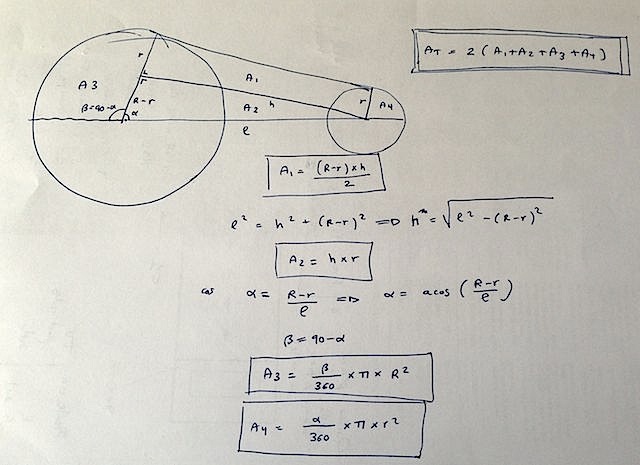 AT = 2 (A1+A2+A3+A4)
r
A1
A3
r
A2 h
r
A4
β=90-α
R-r
α
e
A1 = (R-r)×h / 2
e² = h² + (R-r)² => h = √e² - (R-r)²
A2 = h×r
cos α = R-r / e => α = acos (R-r / e)
β = 90-α
A3 = β / 360 × π × R²
A4 = α / 360 × π × r²